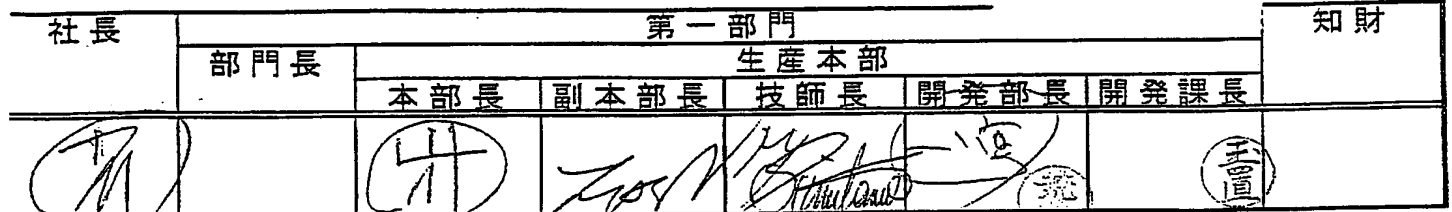 社長 第一部門 知財
部門長 生産本部
本部長 副本部長 技師長 開発部長 開発課長
玉置